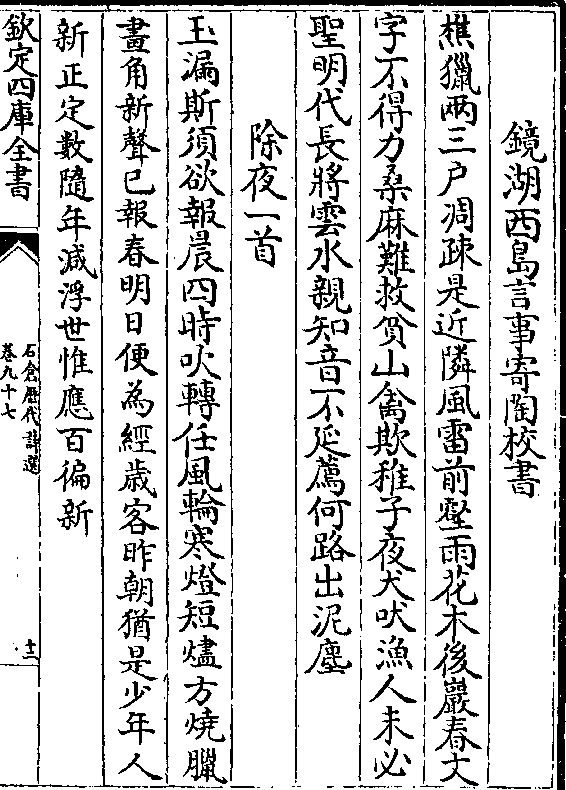 鏡湖西島言事寄陶校書
樵獵兩三户凋疎是近隣風雷前壑雨花木後巖春文
字不得力桑麻難救貧山禽欺稚子夜犬吠漁人未必
聖明代長將雲水親知音不延薦何路出泥塵
除夜一首
玉漏斯須欲報晨四時吹轉任風輪寒燈短燼方燒臘
畫角新聲已報春明日便為經歲客昨朝猶是少年人
新正定數隨年減浮世惟應百徧新
欽定四庫全書
石倉歴代詩選
卷九十七
十二